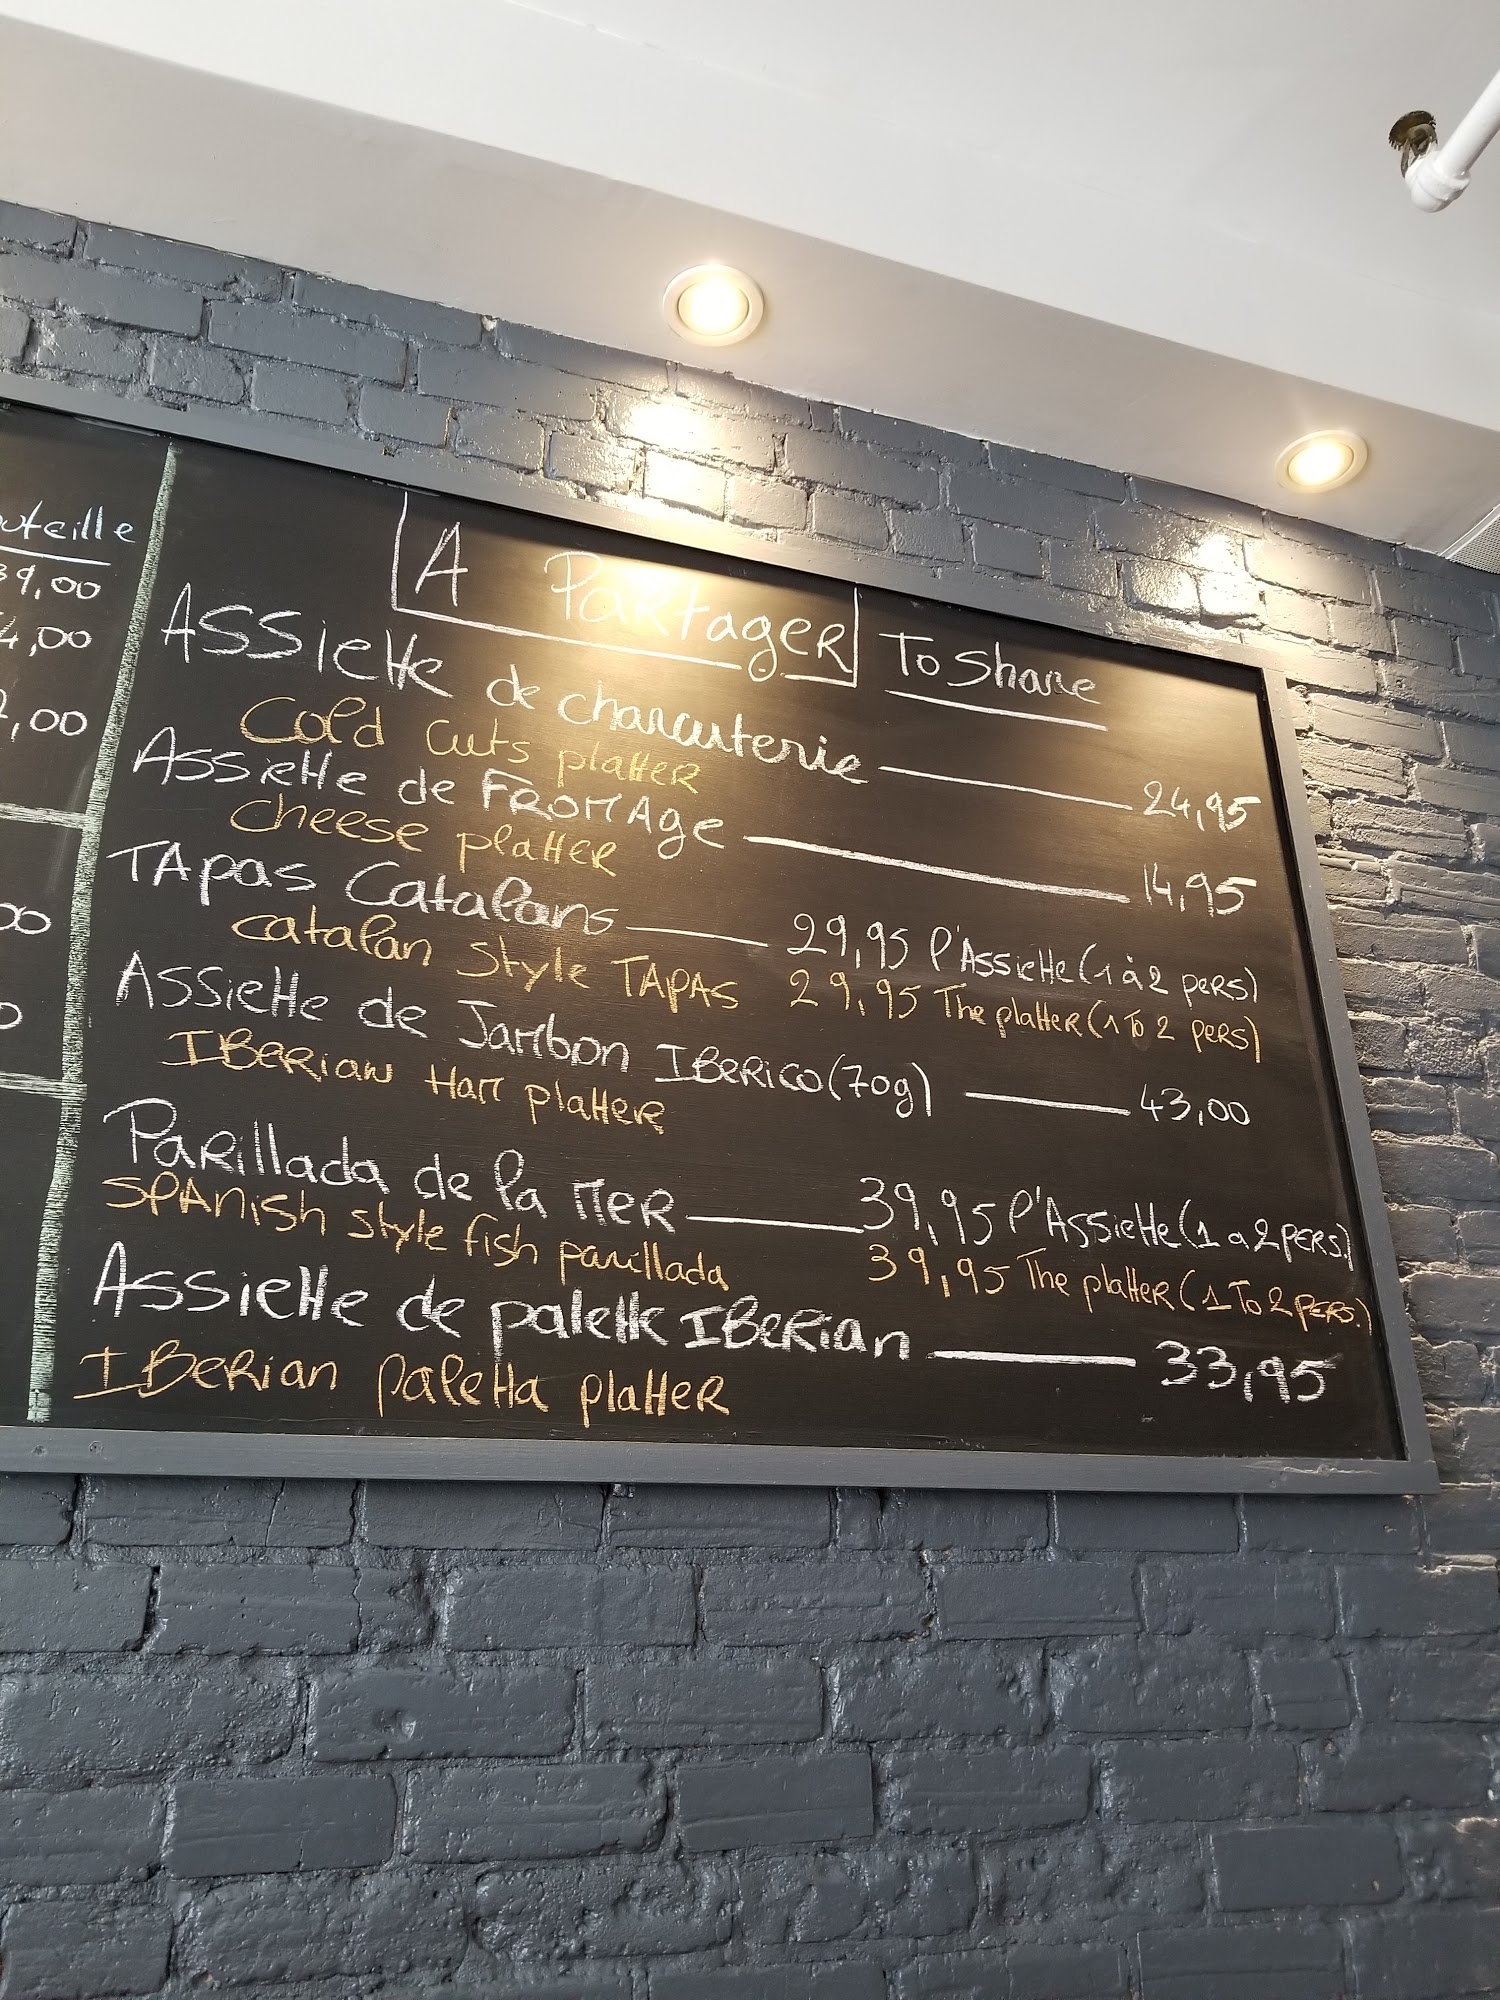 39,00
4,00
7,00
A PARTAGER To Share
Assiette de charcuterie 24,95
Cold cuts platter
Assiette de FROMAge 14,95
Cheese platter
TApas Catalans 29,95 l'Assiette (1 à 2 pers)
catalan style TAPAS 29,95 The platter (1 To 2 pers)
Assiette de Jambon IBERICO (70g) 43,00
IBERIAN Ham platter
PARillada de la MER 39,95 l'Assiette (1 a 2 pers.)
SPAnish style fish parillada 39,95 The platter (1 To 2 pers.)
Assiette de palette IBERian 33,95
IBERian paletta platter